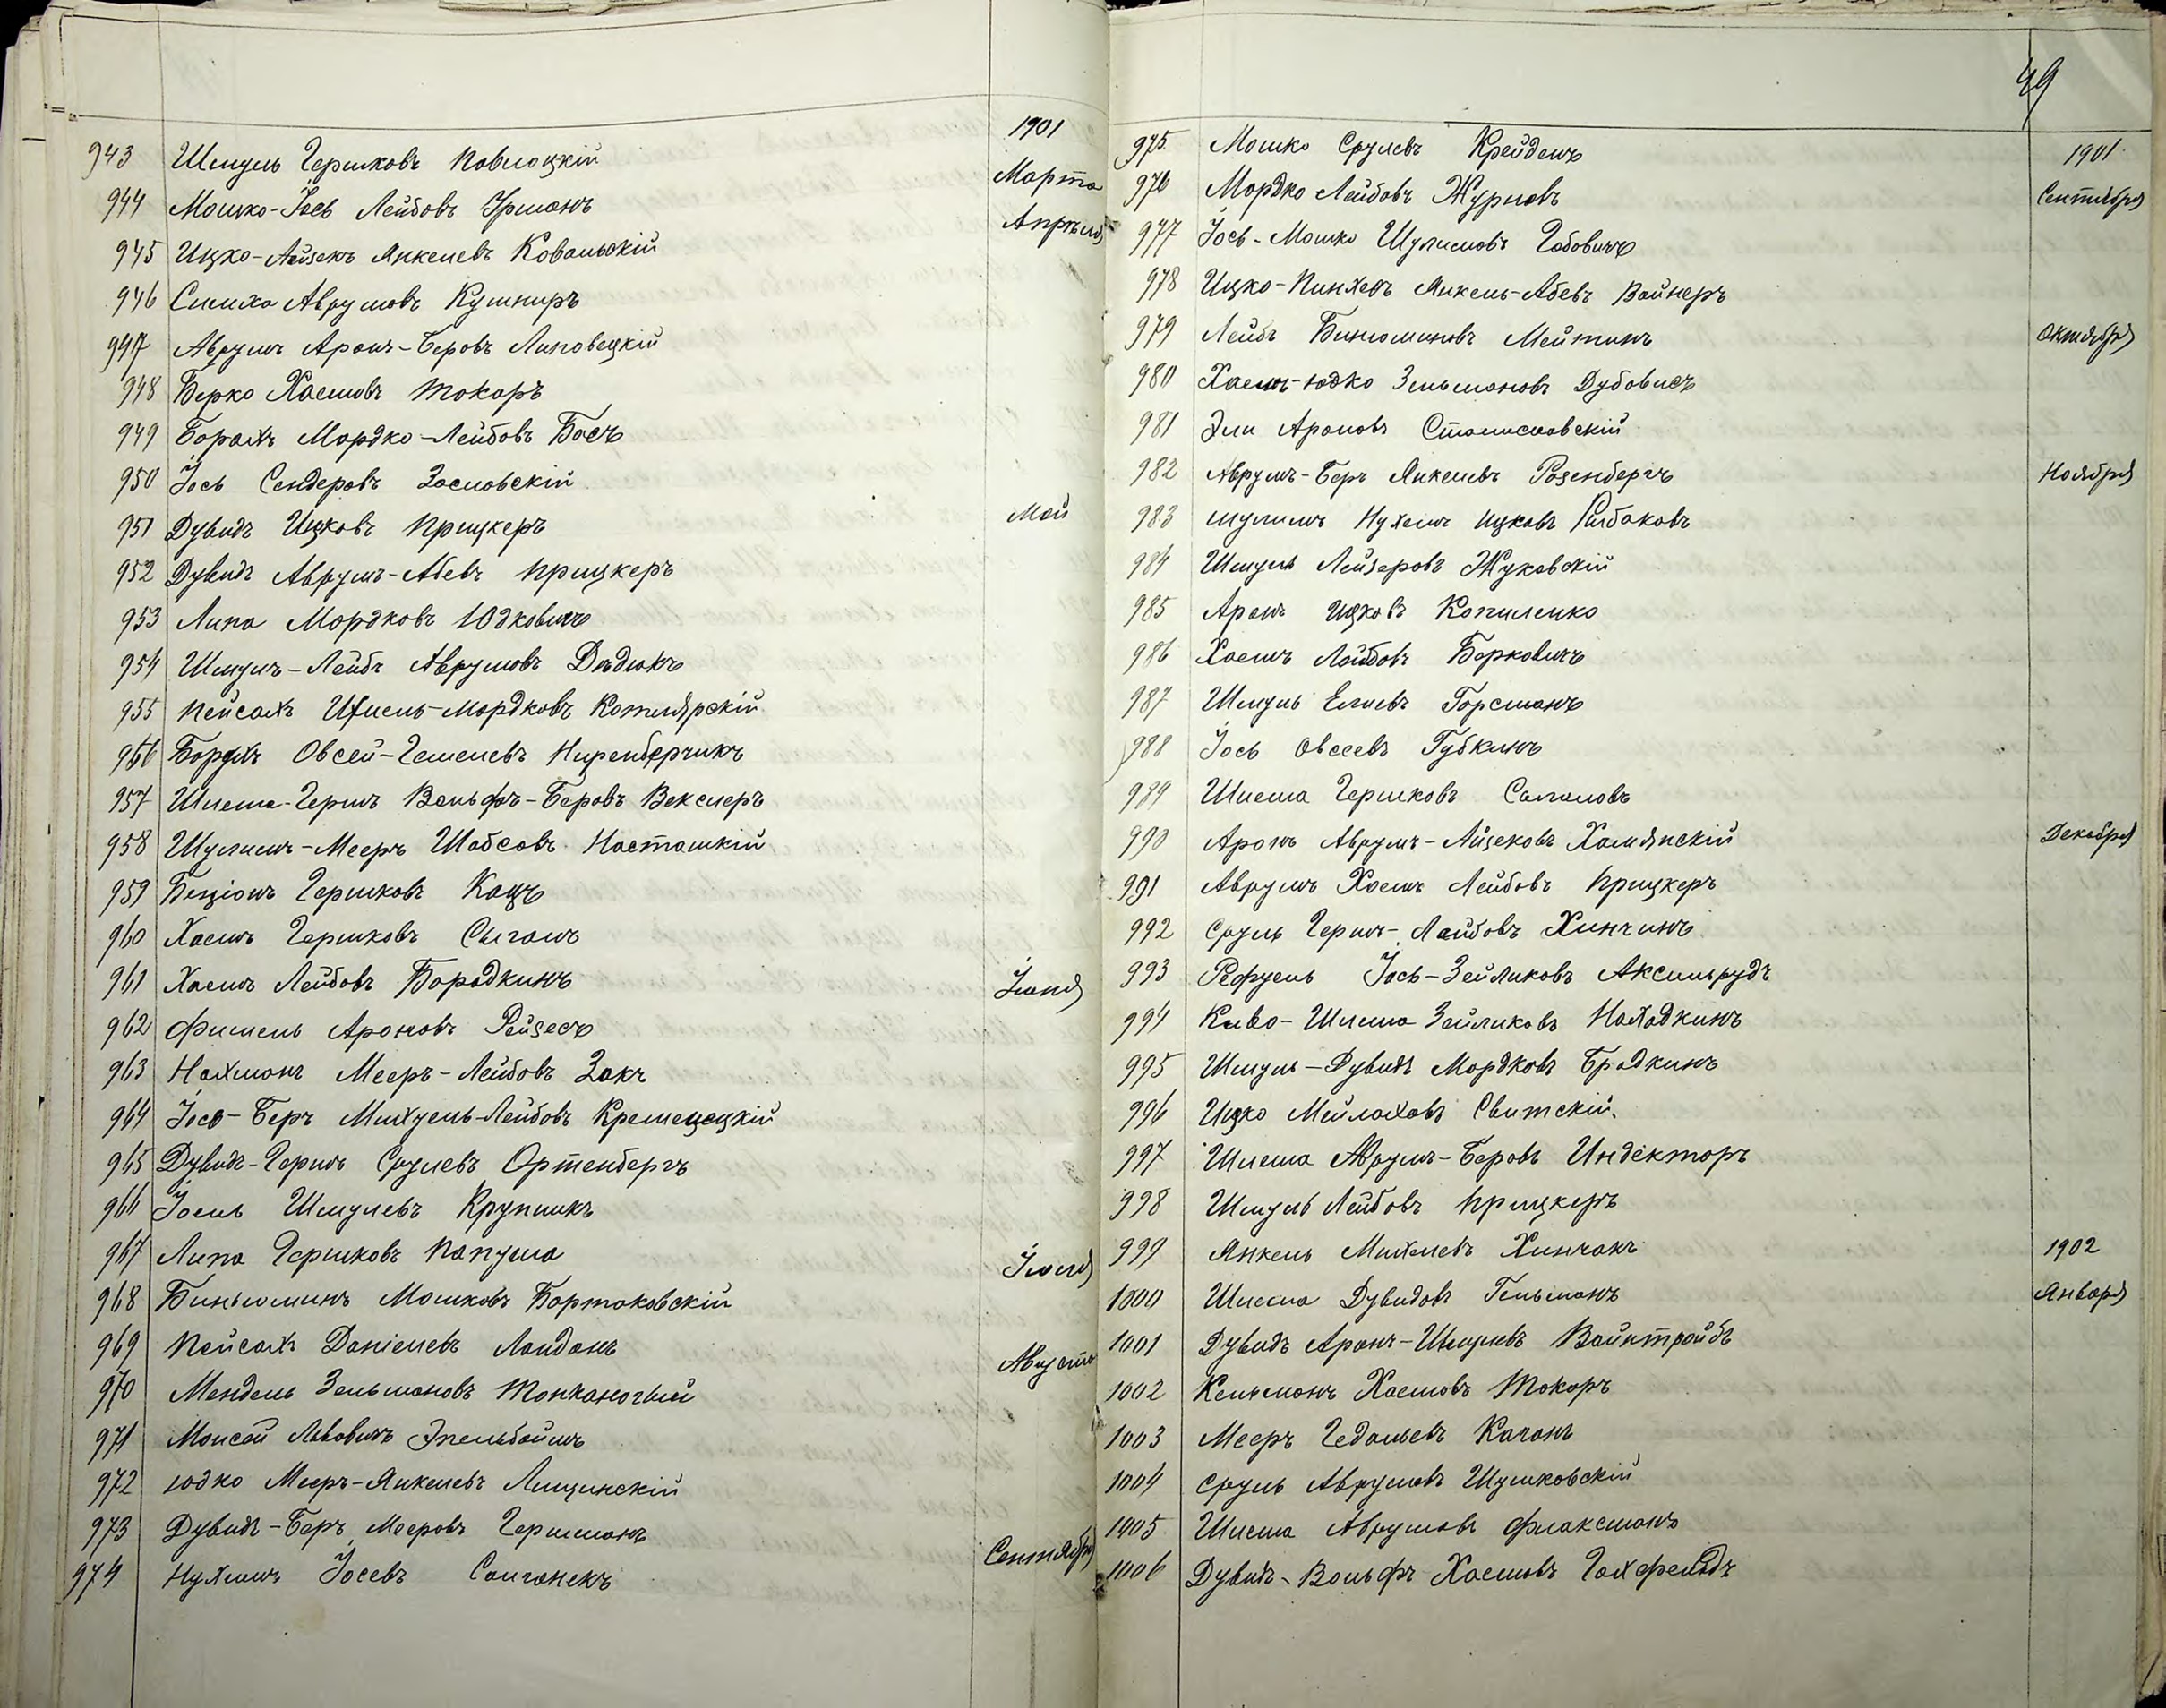 1901
943 Шмуль Гершковъ Поволоцкій Марта
944 Мошко-Іось Лейбовъ Урманъ Апрѣля
945 Ицко-Айзекъ Янкелевъ Ковальскій
946 Симха Аврумовъ Кушниръ
947 Аврумъ Аронъ-Беровъ Липовецкій
948 Берко Хаемовъ Токаръ
949 Борахъ Мордко-Лейбовъ Басъ
950 Іось Сендеровъ Заславскій
951 Дувидъ Ицковъ Прицкеръ Май
952 Дувидъ Аврумъ-Абевъ Прицкеръ
953 Липа Мордковъ Юдковичъ
954 Шмуль-Лейбъ Аврумовъ Дѣдюкъ
955 Пейсахъ Ихиель-Мордковъ Котлярскій
956 Борухъ Овсей-Гешелевъ Ниренберчикъ
957 Шлема-Гершъ Вольфъ-Беровъ Векслеръ
958 Шулимъ-Мееръ Шабсовъ Насташкій
959 Бенціонъ Гершковъ Кацъ
960 Хаемъ Гершковъ Сыганъ
961 Хаемъ Лейбовъ Бородкинъ Іюня
962 Фишель Ароновъ Рейзесъ
963 Нахманъ Мееръ-Лейбовъ Закъ
964 Іось-Беръ Михуель-Лейбовъ Кременецкій
965 Дувидъ-Гершъ Срулевъ Ортенбергъ
966 Іоель Шмулевъ Крупникъ
967 Липа Гершковъ Папуша Іюля
968 Биньюминъ Мошковъ Бортаковскій
969 Пейсахъ Даніелевъ Ландонъ Августа
970 Мендель Зельмановъ Тонканогый
971 Моисей Львовичъ Эпельбоймъ
972 Юдко Мееръ-Янкелевъ Лищинскій
973 Дувидъ-Беръ Мееровъ Гершманъ
974 Нухимъ Іосевъ Салганекъ Сентября
49
1901
975 Мошко Срулевъ Крейденъ
976 Мордко Лейбовъ Журновъ Сентября
977 Іось-Мошко Шулимовъ Габовичъ
978 Ицко-Пинхесъ Янкель-Абевъ Вайнеръ
979 Лейбъ Биньоминовъ Мейтинъ Октября
980 Хаемъ-Юдко Зельмановъ Дубовисъ
981 Эли Ароновъ Станиславскій
982 Аврумъ-Беръ Янкелевъ Розенбергъ Ноября
983 Шулимъ Нухемъ Ицковъ Рыбаковъ
984 Шмуль Лейзеровъ Жуковскій
985 Аронъ Ицковъ Копиленко
986 Хаемъ Лейбовъ Берковичъ
987 Шмуль Елиевъ Горсманъ
988 Іось Овсеевъ Губкинъ
989 Шлема Гершковъ Салановъ
990 Аронъ Аврумъ-Айзековъ Холмянскій Декабря
991 Аврумъ Хаемъ Лейбовъ Прицкеръ
992 Сруль Гершъ-Лейбовъ Хинчинъ
993 Рефуель Іось-Зейликовъ Аксельрудъ
994 Киво-Шлема Зейликовъ Находкинъ
995 Шмуль-Дувидъ Мордковъ Бродкинъ
996 Ицко Мейлаховъ Свитскій
997 Шлема Аврумъ-Беровъ Индекторъ
998 Шмуль Лейбовъ Прицкеръ
999 Янкель Михелевъ Хинчакъ 1902
1000 Шлема Дувидовъ Гельманъ Января
1001 Дувидъ Аронъ-Шмулевъ Вайнтройбъ
1002 Кельманъ Хаемовъ Токоръ
1003 Мееръ Гедальевъ Каганъ
1004 Сруль Аврумовъ Шумковскій
1005 Шлема Аврумовъ Флаксманъ
1006 Дувидъ-Вольфъ Хаемовъ Гохфельдъ